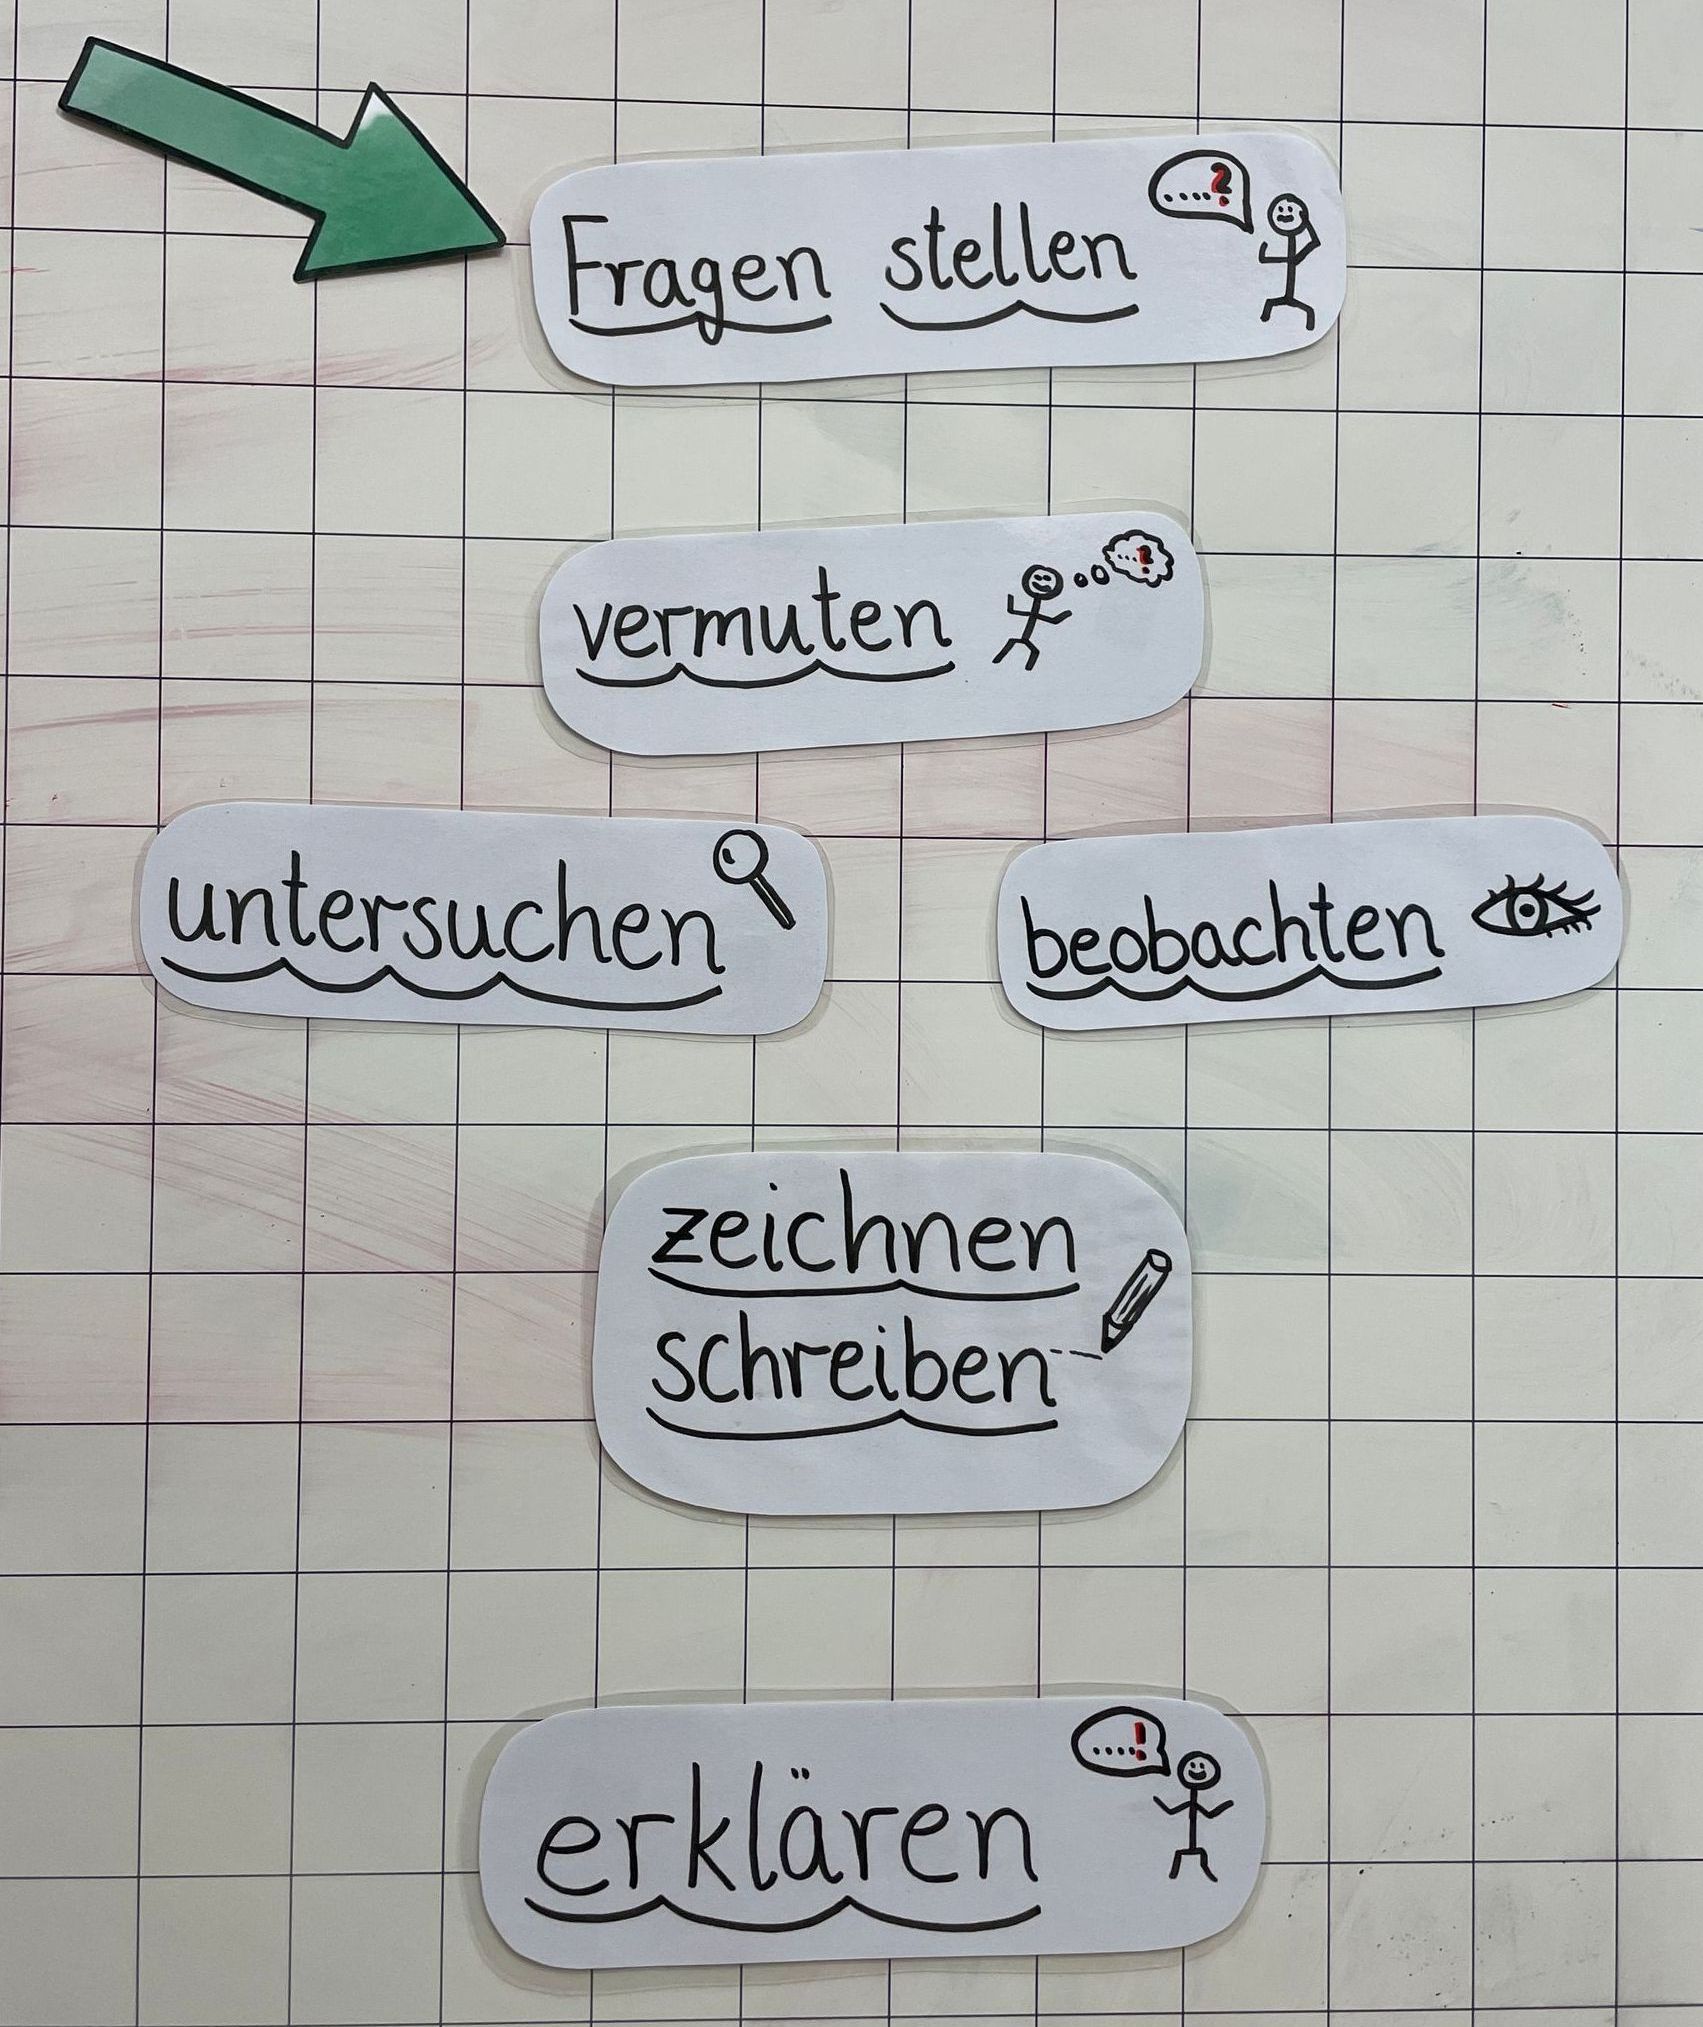 Fragen stellen
vermuten
untersuchen
beobachten
zeichnen
schreiben
erklären